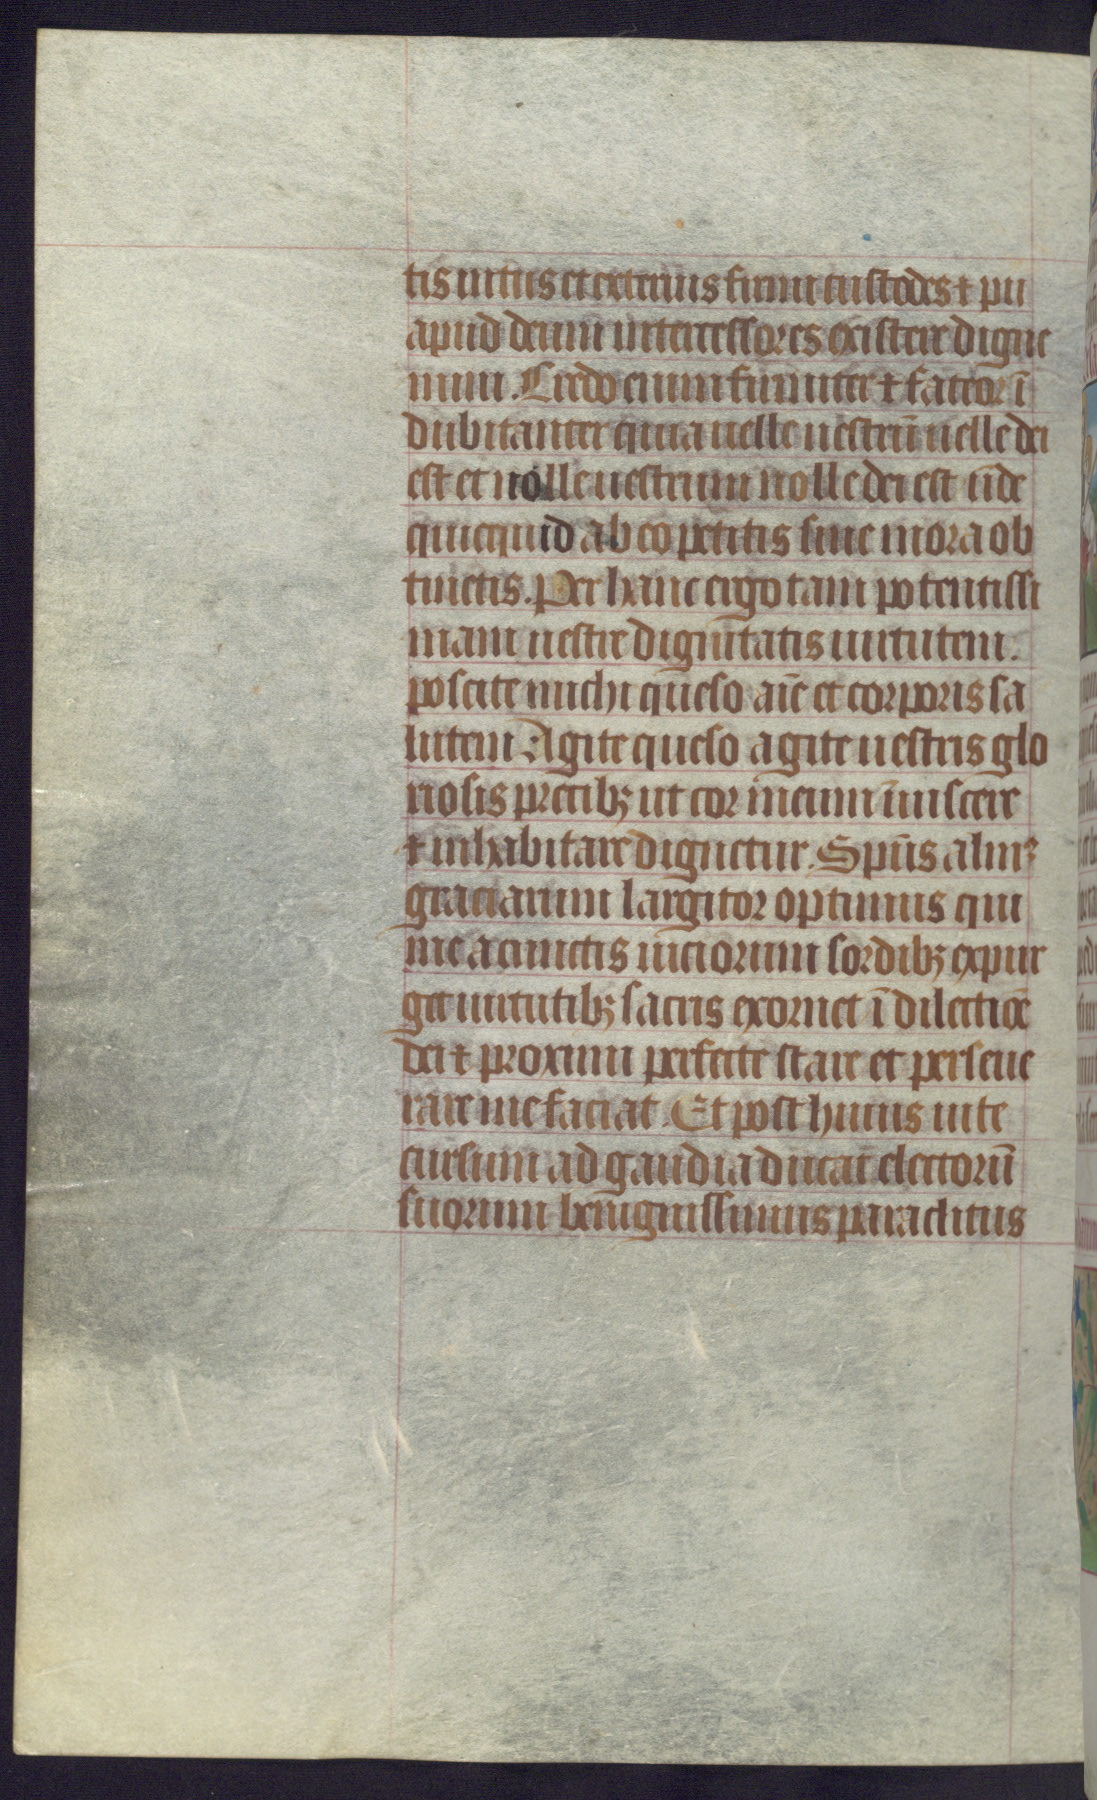 tis intus et exterius firmi custodes ⁊ pii
apud deum intercessores existere digne
mini. Credo enim firmiter ⁊ fateor ī
dubitanter quia uelle uestrū uelle dei
est et nolle uestrum nolle dei est ūde
quicquid ab eo petitis sine mora ob
tinetis. Per hanc ergo tam potentissi
mam uestre dignitatis uirtutem.
poscite michi queso aīe et corporis sa
lutem Agite queso agite uestris glo
riosis precibꝫ ut cor meum īuiscere
⁊ inhabitare dignetur. Sp̄us almꝰ
graciarum largitor optimus qui
me a cunctis uiciorum sordibꝫ expur
get uirtutibꝫ sacris exornet ī dilectiōe
dei ⁊ proximi perfecte stare et perseue
rare me faciat. Et post huius uite
cursum ad gaudia ducat electorū
suorum benignissimus paraclitus